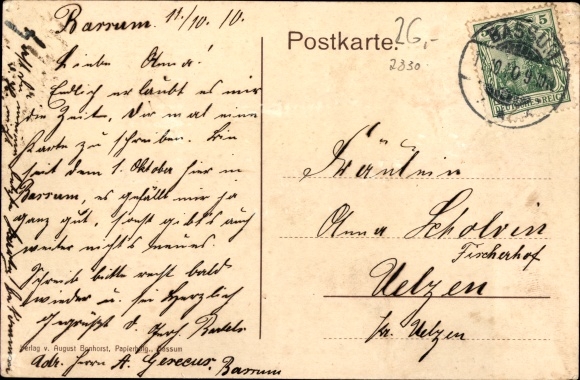 Bassum. 11./10. 10.
Liebe Anna!
Endlich erlaubt es mir
die Zeit, Dir mal eine
Karte zu schreiben. Bin
seit dem 1. Oktober hier in
Bassum, es gefällt mir ja
ganz gut, sonst gibt's auch
weiter nichts neues.
Schreib bitte recht bald
wieder u. sei Herzlich
gegrüßt d.
Verlag v. August Bonhorst, Papierhdlg., Bassum
Adr. Herrn A. Bassum
Postkarte.
26,-
2830
5
DEUTSCHES REICH
BASSUM
Fräulein
Anna Scholvin
Fischerhof
Uelzen
Kr. Uelzen